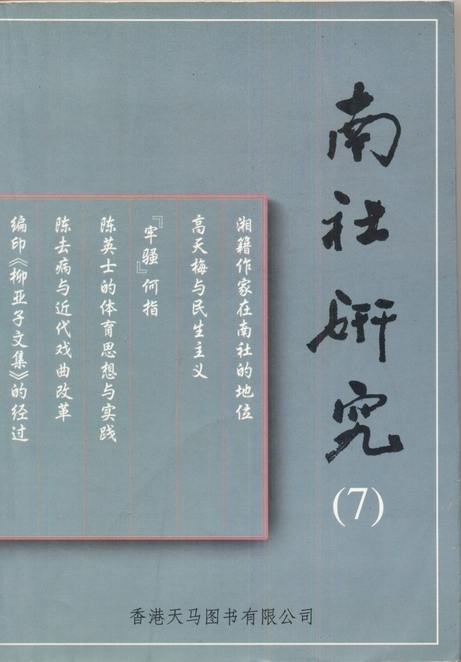 南社研究
(7)
湘籍作家在南社的地位
高天梅与民生主义
『牢骚』何指
陈英士的体育思想与实践
陈去病与近代戏曲改革
编印《柳亚子文集》的经过
香港天马图书有限公司